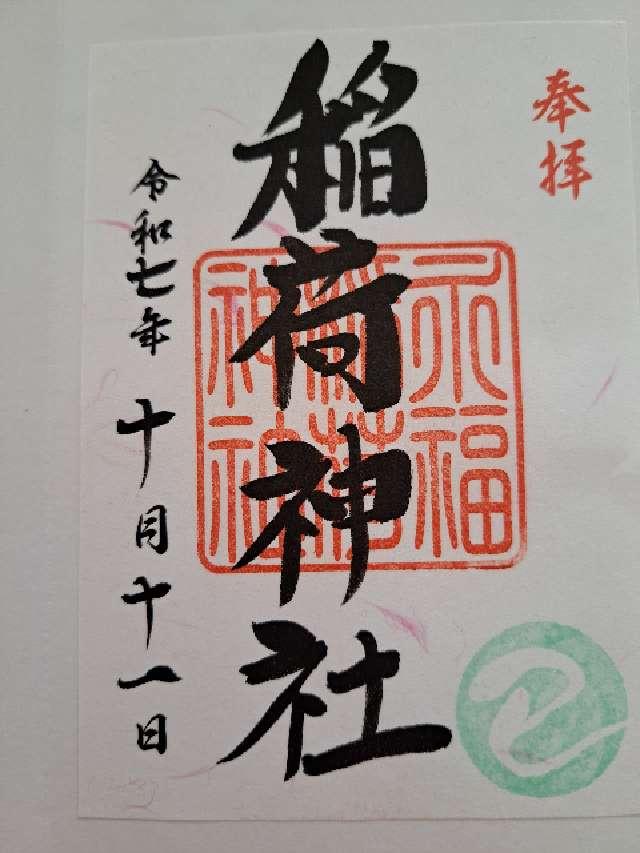 奉拝
稲荷神社
永福
稲荷
神社
令和七年十月十一日